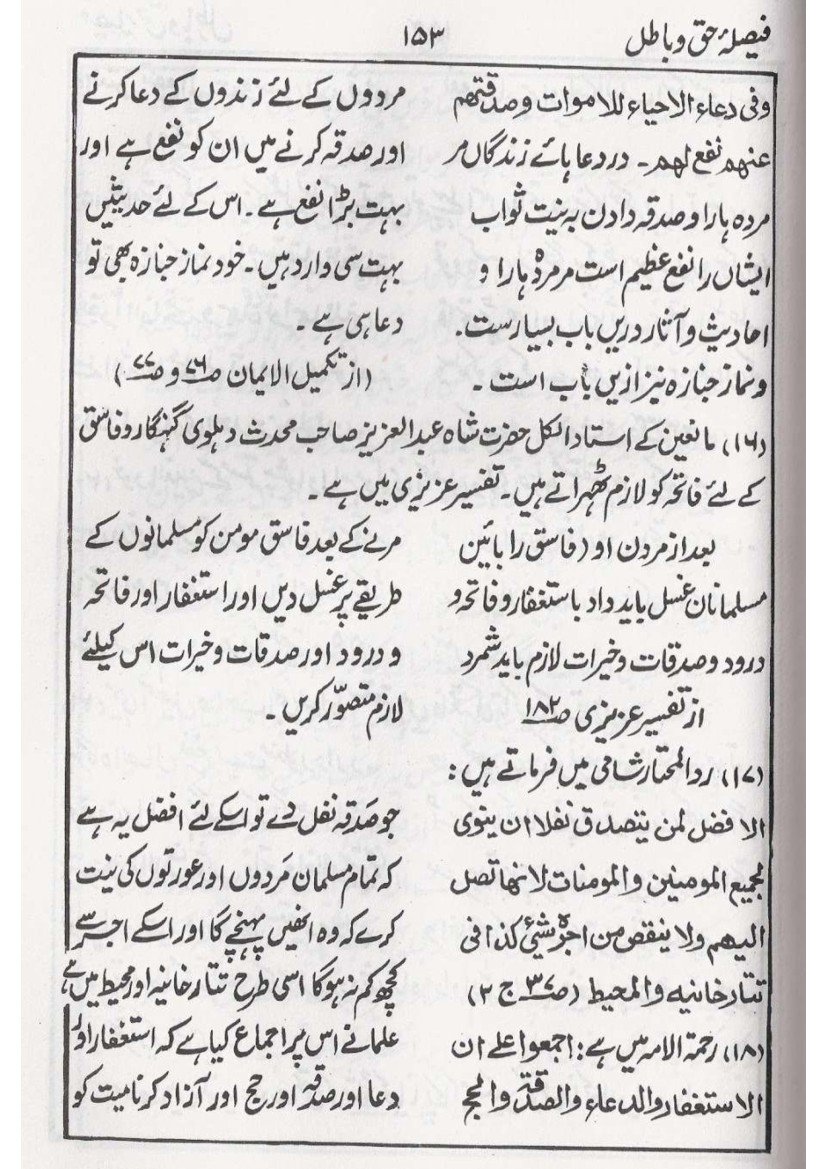 فیصلۂ حق و باطل ۱۵۳
وفی دعاء الاحیاء للاموات وصدقتھم
عنھم نفع لھم۔ در دعا ہائے زندگاں مر
مردہ ہا را و صدقہ دادن بہ نیت ثواب
ایشاں را نفع عظیم است مر مردہ ہا را و
احادیث و آثار دریں باب بسیار ست۔
و نماز جنازہ نیز ازیں باب است۔
مردوں کے لئے زندوں کے دعا کرنے
اور صدقہ کرنے میں ان کو نفع ہے اور
بہت بڑا نفع ہے۔ اس کے لئے حدیثیں
بہت سی وارد ہیں۔ خود نماز جنازہ بھی تو
دعا ہی ہے۔
(از تکمیل الایمان صـ۷۶ و صـ۷۷)
(۱۶) مانعین کے استاد الکل حضرت شاہ عبدالعزیز صاحب محدث دہلوی گنہگار و فاسق
کے لئے فاتحہ کو لازم ٹھہراتے ہیں۔ تفسیر عزیزی میں ہے۔
بعد از مردن او (فاسق را بائین
مسلمانان غسل باید داد باستغفار و فاتحہ و
درود و صدقات و خیرات لازم باید شمرد
از تفسیر عزیزی صـ۱۸۲
مرنے کے بعد فاسق مومن کو مسلمانوں کے
طریقے پر غسل دیں اور استغفار اور فاتحہ
و درود اور صدقات و خیرات اس کیلئے
لازم متصوّر کریں۔
(۱۷) رد المحتار شامی میں فرماتے ہیں:
الافضل لمن یتصدق نفلا ان ینوی
لجمیع المومنین والمومنات لانھا تصل
الیھم ولا ینقص من اجرہ شئی کذا فی
تتارخانیہ والمحیط (صـ۳۷ ج ۲)
جو صَدقہ نفل دے تو اسکے لئے افضل یہ ہے
کہ تمام مسلمان مَردوں اور عورتوں کی نیت
کرے کہ وہ انھیں پہنچے گا اور اسکے اجر سے
کچھ کم نہ ہوگا اسی طرح تتارخانیہ اور محیط میں ہے
(۱۸) رحمۃ الامہ میں ہے: اجمعوا علے ان
الاستغفار والدعاء والصدقۃ والحج
علما نے اس پر اجماع کیا ہے کہ استغفار اور
دعا اور صدقہ اور حج اور آزاد کرنا میت کو